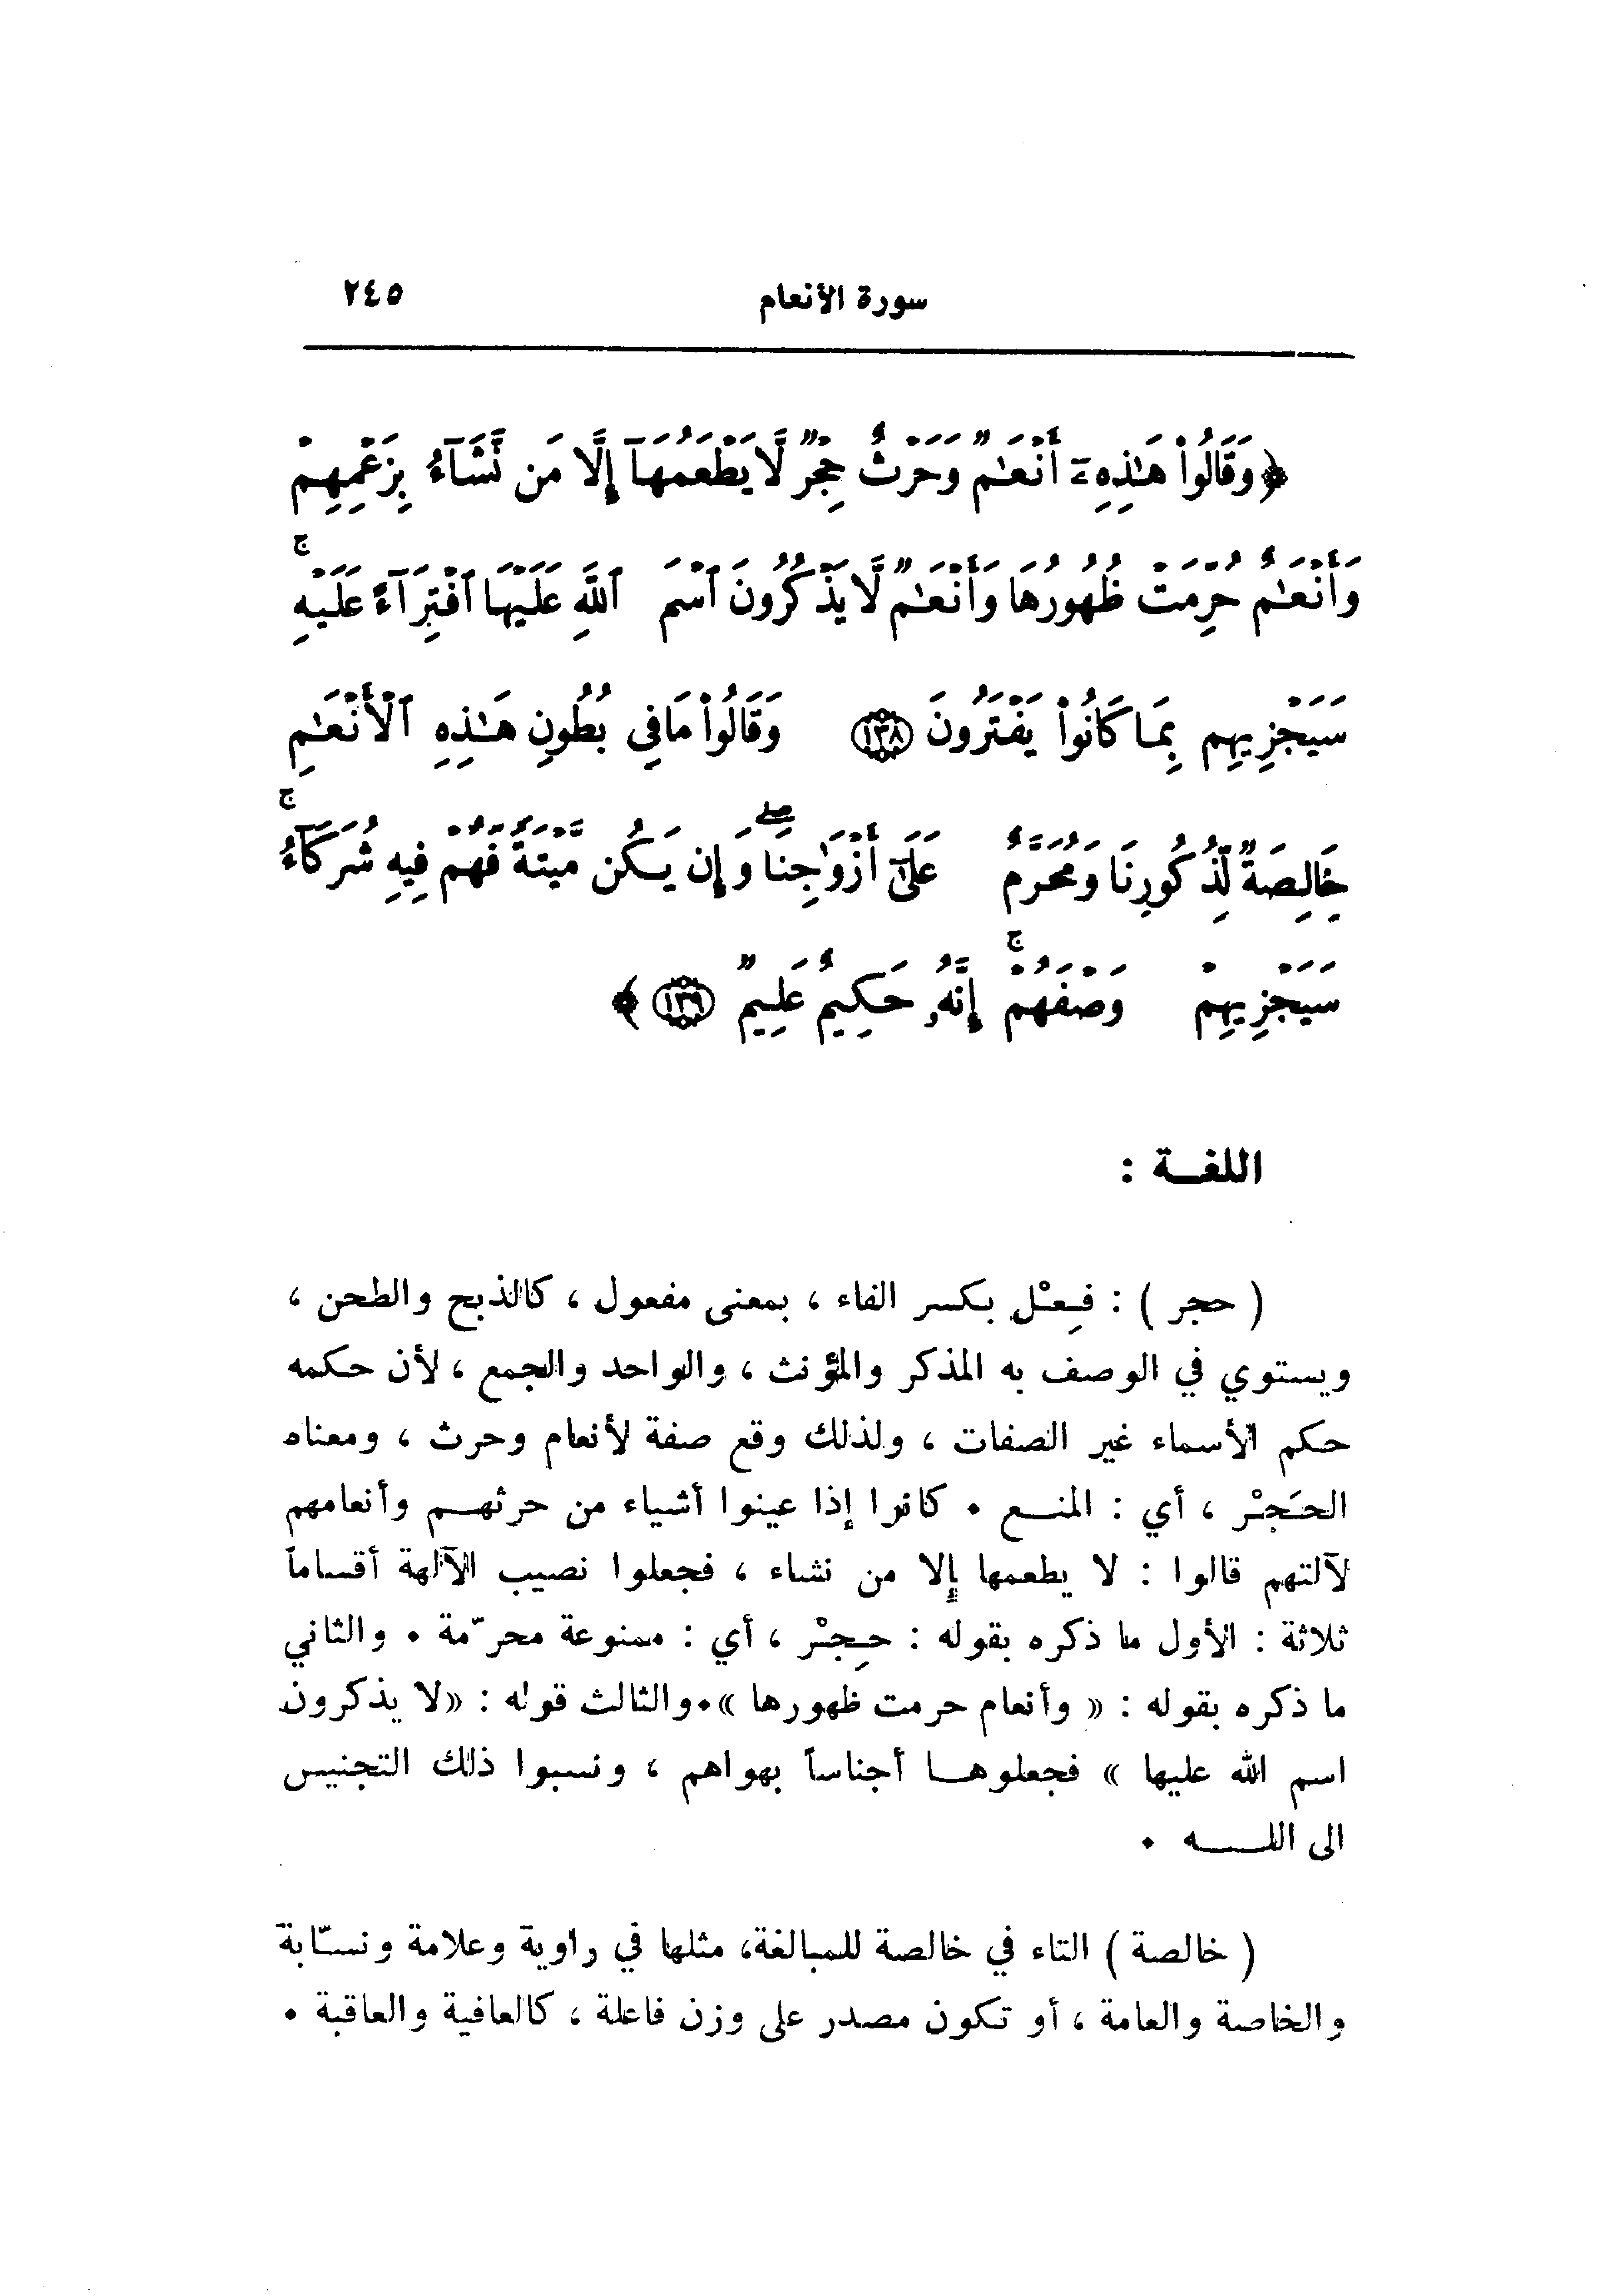 سورة الأنعام ٢٤٥
﴿وَقَالُوا۟ هَـٰذِهِۦٓ أَنْعَـٰمٌ وَحَرْثٌ حِجْرٌ لَّا يَطْعَمُهَآ إِلَّا مَن نَّشَآءُ بِزَعْمِهِمْ
وَأَنْعَـٰمٌ حُرِّمَتْ ظُهُورُهَا وَأَنْعَـٰمٌ لَّا يَذْكُرُونَ ٱسْمَ ٱللَّهِ عَلَيْهَا ٱفْتِرَآءً عَلَيْهِ ۚ
سَيَجْزِيهِم بِمَا كَانُوا۟ يَفْتَرُونَ ١٣٨ وَقَالُوا۟ مَا فِي بُطُونِ هَـٰذِهِ ٱلْأَنْعَـٰمِ
خَالِصَةٌ لِّذُكُورِنَا وَمُحَرَّمٌ عَلَىٰٓ أَزْوَٰجِنَا ۖ وَإِن يَكُن مَّيْتَةً فَهُمْ فِيهِ شُرَكَآءُ ۚ
سَيَجْزِيهِمْ وَصْفَهُمْ ۚ إِنَّهُۥ حَكِيمٌ عَلِيمٌ ١٣٩﴾
اللغـــة :
( حجر ) : فِعْل بكسر الفاء ، بمعنى مفعول ، كالذبح والطحن ،
ويستوي في الوصف به المذكر والمؤنث ، والواحد والجمع ، لأن حكمه
حكم الأسماء غير الصفات ، ولذلك وقع صفة لأنعام وحرث ، ومعناه
الحَجْر ، أي : المنـــع ٠ كانوا إذا عينوا أشياء من حرثهـــم وأنعامهم
لآلتهم قالوا : لا يطعمها إلا من نشاء ، فجعلوا نصيب الآلهة أقساماً
ثلاثة : الأول ما ذكره بقوله : حِجْر ، أي : ممنوعة محرّمة ٠ والثاني
ما ذكره بقوله : « وأنعام حرمت ظهورها »٠والثالث قوله : «لا يذكرون
اسم الله عليها » فجعلوهــا أجناساً بهواهم ، ونسبوا ذلك التجنيس
الى اللــــه ٠
( خالصة ) التاء في خالصة للمبالغة، مثلها في راوية وعلامة ونسّابة
والخاصة والعامة ، أو تكون مصدر على وزن فاعلة ، كالعافية والعاقبة ٠